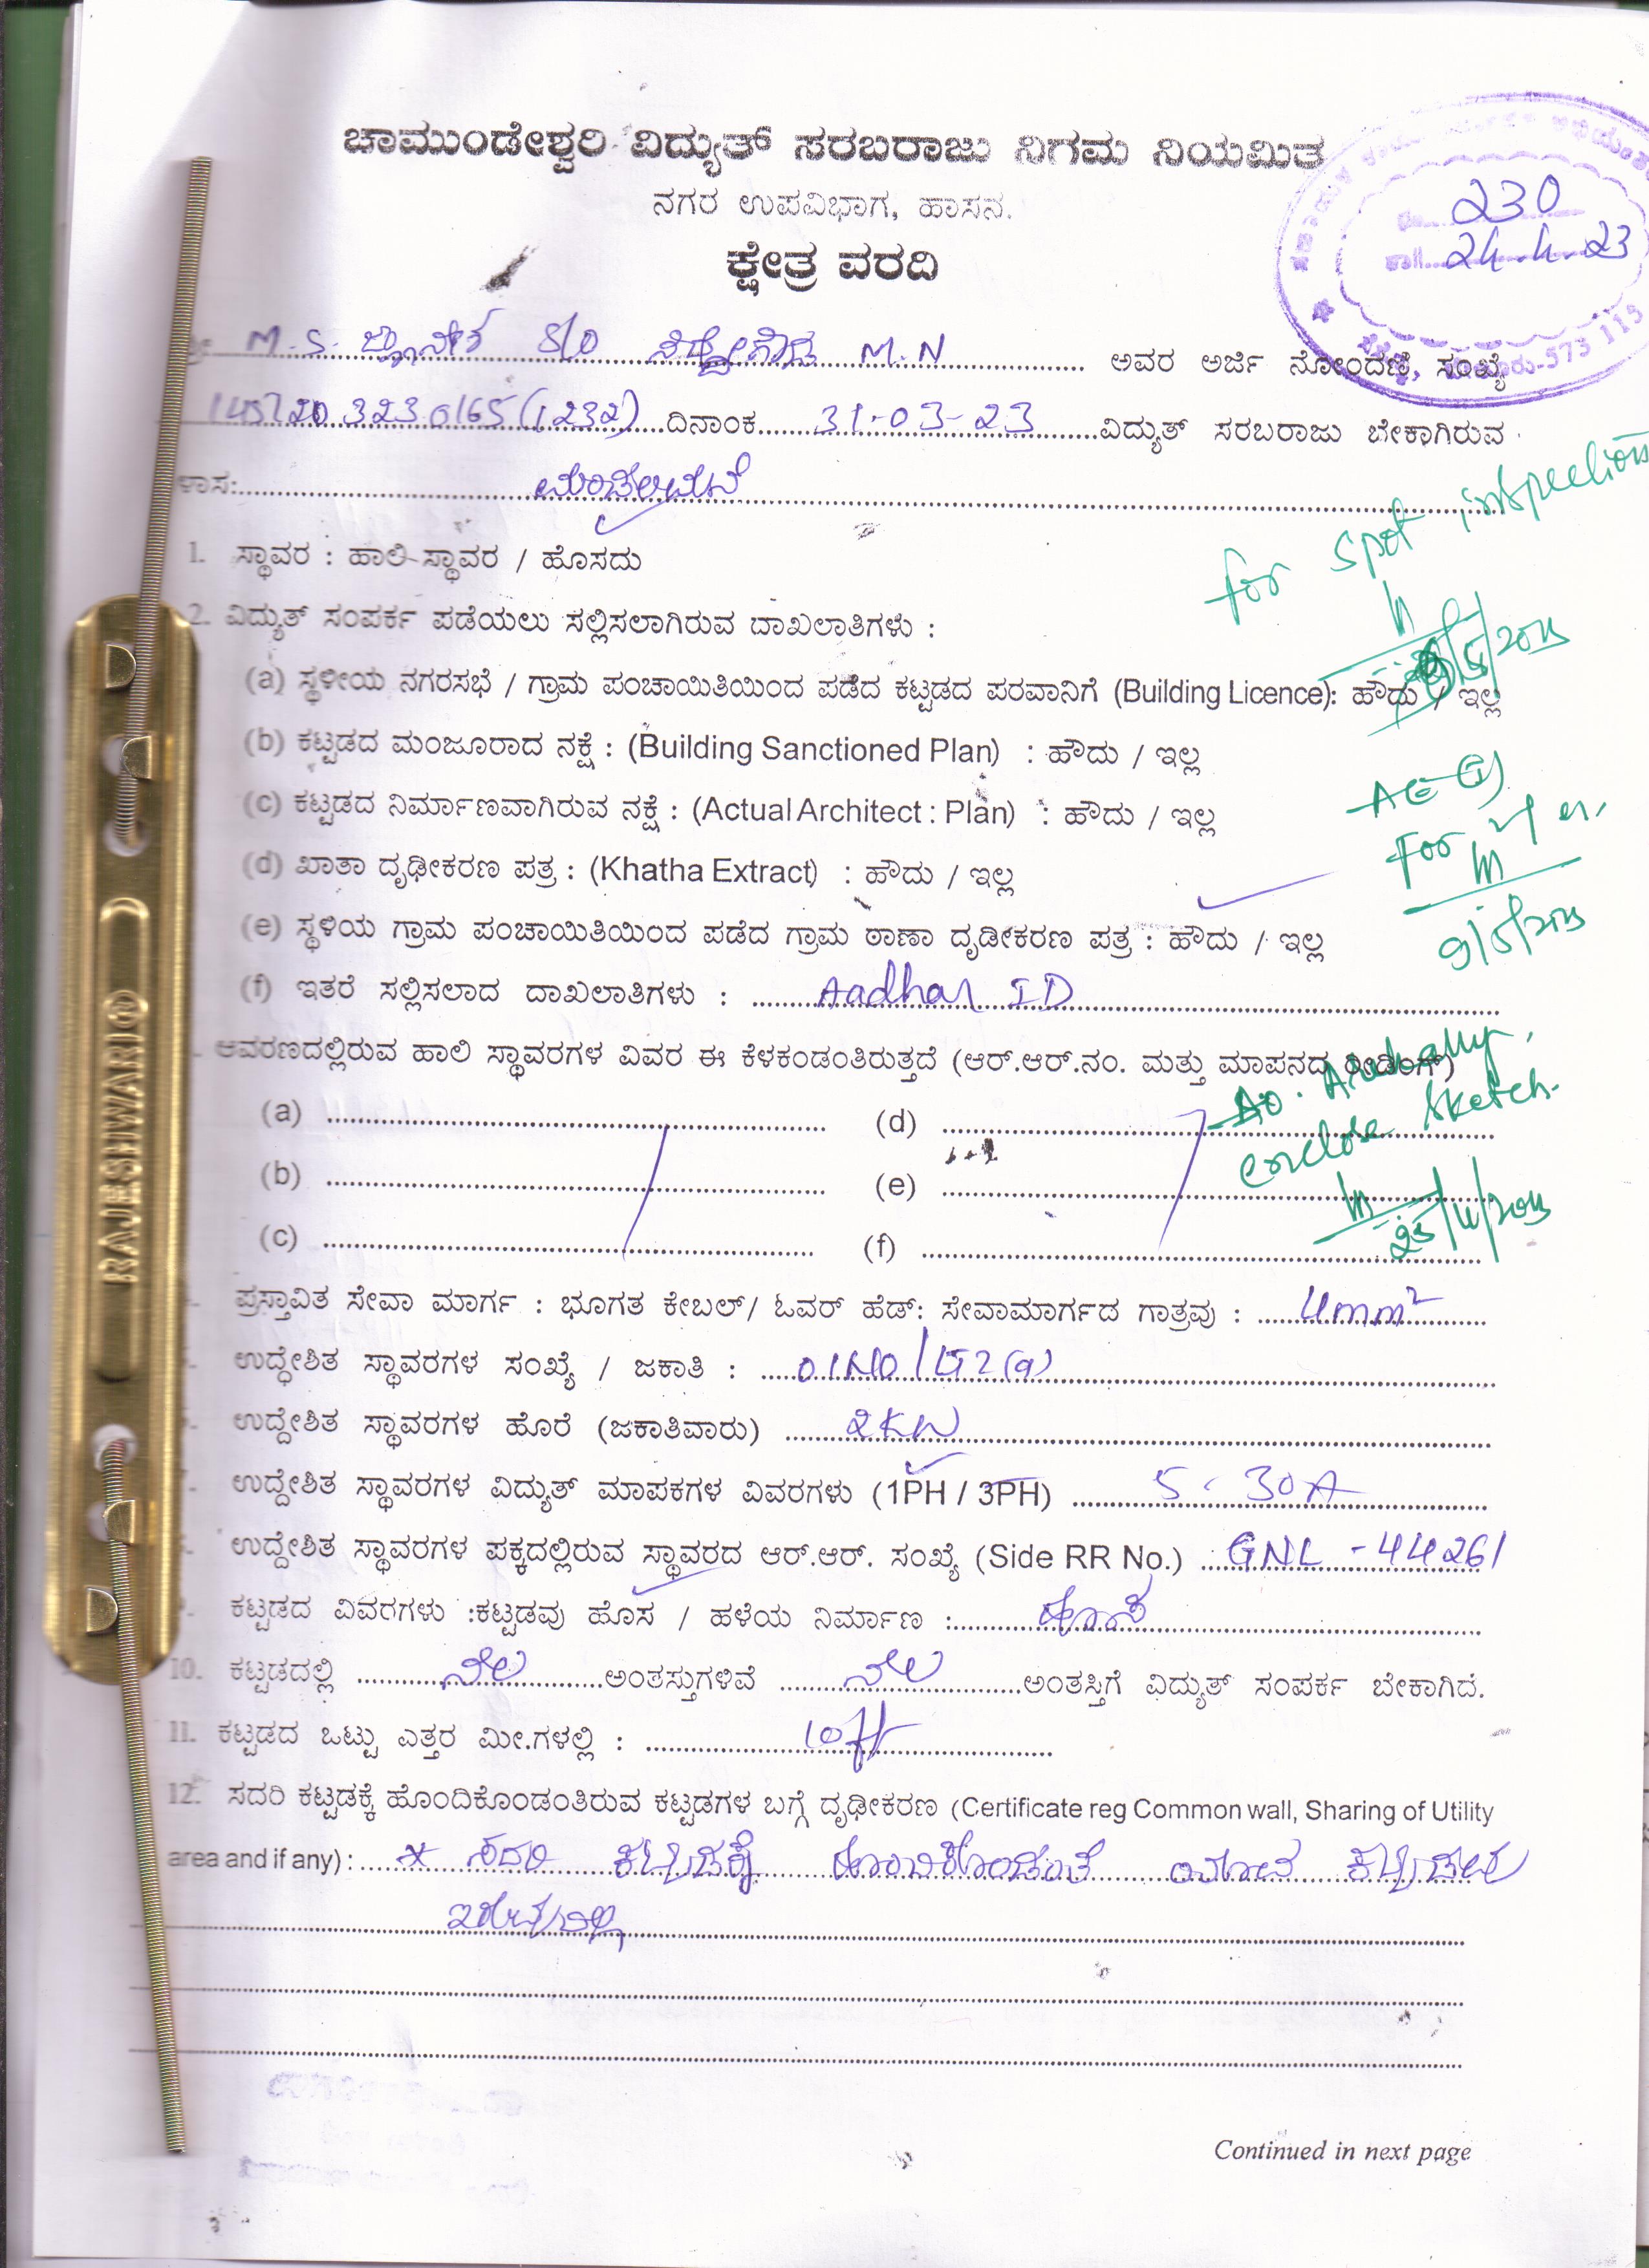 ಚಾಮುಂಡೇಶ್ವರಿ ವಿದ್ಯುತ್ ಸರಬರಾಜು ನಿಗಮ ನಿಯಮಿತ
ನಗರ ಉಪವಿಭಾಗ, ಹಾಸನ.
230
24.4.23
573 113
ಕ್ಷೇತ್ರ ವರದಿ
M.S. S/O M.N ಅವರ ಅರ್ಜಿ ನೋಂದಣಿ, ಸಂಖ್ಯೆ
(1232) ದಿನಾಂಕ 31-03-23 ವಿದ್ಯುತ್ ಸರಬರಾಜು ಬೇಕಾಗಿರುವ
ಳಾಸ:
for spot inspection
1. ಸ್ಥಾವರ : ಹಾಲಿ ಸ್ಥಾವರ / ಹೊಸದು
2. ವಿದ್ಯುತ್ ಸಂಪರ್ಕ ಪಡೆಯಲು ಸಲ್ಲಿಸಲಾಗಿರುವ ದಾಖಲಾತಿಗಳು :
(a) ಸ್ಥಳೀಯ ನಗರಸಭೆ / ಗ್ರಾಮ ಪಂಚಾಯಿತಿಯಿಂದ ಪಡೆದ ಕಟ್ಟಡದ ಪರವಾನಿಗೆ (Building Licence): ಹೌದು / ಇಲ್ಲ
(b) ಕಟ್ಟಡದ ಮಂಜೂರಾದ ನಕ್ಷೆ : (Building Sanctioned Plan) : ಹೌದು / ಇಲ್ಲ
(c) ಕಟ್ಟಡದ ನಿರ್ಮಾಣವಾಗಿರುವ ನಕ್ಷೆ : (Actual Architect : Plan) : ಹೌದು / ಇಲ್ಲ
For
(d) ಖಾತಾ ದೃಢೀಕರಣ ಪತ್ರ : (Khatha Extract) : ಹೌದು / ಇಲ್ಲ
(e) ಸ್ಥಳಿಯ ಗ್ರಾಮ ಪಂಚಾಯಿತಿಯಿಂದ ಪಡೆದ ಗ್ರಾಮ ಠಾಣಾ ದೃಡೀಕರಣ ಪತ್ರ : ಹೌದು / ಇಲ್ಲ
(f) ಇತರೆ ಸಲ್ಲಿಸಲಾದ ದಾಖಲಾತಿಗಳು : Aadhar ID
ಆವರಣದಲ್ಲಿರುವ ಹಾಲಿ ಸ್ಥಾವರಗಳ ವಿವರ ಈ ಕೆಳಕಂಡಂತಿರುತ್ತದೆ (ಆರ್.ಆರ್.ನಂ. ಮತ್ತು ಮಾಪನದ ರೀಡಿಂಗ್)
(a) (d)
enclose sketch
(b) (e)
(c) (f)
ಪ್ರಸ್ತಾವಿತ ಸೇವಾ ಮಾರ್ಗ : ಭೂಗತ ಕೇಬಲ್/ ಓವರ್ ಹೆಡ್: ಸೇವಾಮಾರ್ಗದ ಗಾತ್ರವು : 4mm²
ಉದ್ಧೇಶಿತ ಸ್ಥಾವರಗಳ ಸಂಖ್ಯೆ / ಜಕಾತಿ : 01No / LT2(a)
ಉದ್ದೇಶಿತ ಸ್ಥಾವರಗಳ ಹೊರೆ (ಜಕಾತಿವಾರು) 2KW
ಉದ್ದೇಶಿತ ಸ್ಥಾವರಗಳ ವಿದ್ಯುತ್ ಮಾಪಕಗಳ ವಿವರಗಳು (1PH / 3PH) 5-30A
ಉದ್ದೇಶಿತ ಸ್ಥಾವರಗಳ ಪಕ್ಕದಲ್ಲಿರುವ ಸ್ಥಾವರದ ಆರ್.ಆರ್. ಸಂಖ್ಯೆ (Side RR No.) GNL-44261
ಕಟ್ಟಡದ ವಿವರಗಳು :ಕಟ್ಟಡವು ಹೊಸ / ಹಳೆಯ ನಿರ್ಮಾಣ : ಹೊಸ
10. ಕಟ್ಟಡದಲ್ಲಿ ನೆಲ ಅಂತಸ್ತುಗಳಿವೆ ನೆಲ ಅಂತಸ್ತಿಗೆ ವಿದ್ಯುತ್ ಸಂಪರ್ಕ ಬೇಕಾಗಿದೆ.
11. ಕಟ್ಟಡದ ಒಟ್ಟು ಎತ್ತರ ಮೀ.ಗಳಲ್ಲಿ : 10ft
12. ಸದರಿ ಕಟ್ಟಡಕ್ಕೆ ಹೊಂದಿಕೊಂಡಂತಿರುವ ಕಟ್ಟಡಗಳ ಬಗ್ಗೆ ದೃಢೀಕರಣ (Certificate reg Common wall, Sharing of Utility
area and if any) : * ಸದರಿ ಕಟ್ಟಡಕ್ಕೆ ಹೊಂದಿಕೊಂಡಂತೆ ಯಾವ ಕಟ್ಟಡವೂ
ಇರುವುದಿಲ್ಲ
Continued in next page
RAJESHWARI®